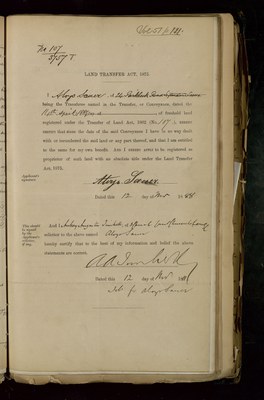 Vol 51 fo 188.
No 157
3757 T
LAND TRANSFER ACT, 1875.
I Aloys Sauer of
being the Transferee named in the Transfer, or Conveyance, dated the
April of freehold land
registered under the Transfer of Land Act, 1862 (No. 157), assure
assure that since the date of the said Conveyance I have in no way dealt
with or encumbered the said land or any part thereof, and that I am entitled
to the same for my own benefit. And I desire to be registered as
proprietor of such land with an absolute title under the Land Transfer
Act, 1875.
Applicant's
signature.
Aloys Sauer.
Dated this 12 day of Nov
This should
be signed
by the
Applicant's
solicitor,
if any.
And I
solicitor to the above named Aloys Sauer
hereby certify that to the best of my information and belief the above
statements are correct.
Dated this 12 day of Nov
Solr for Aloys Sauer